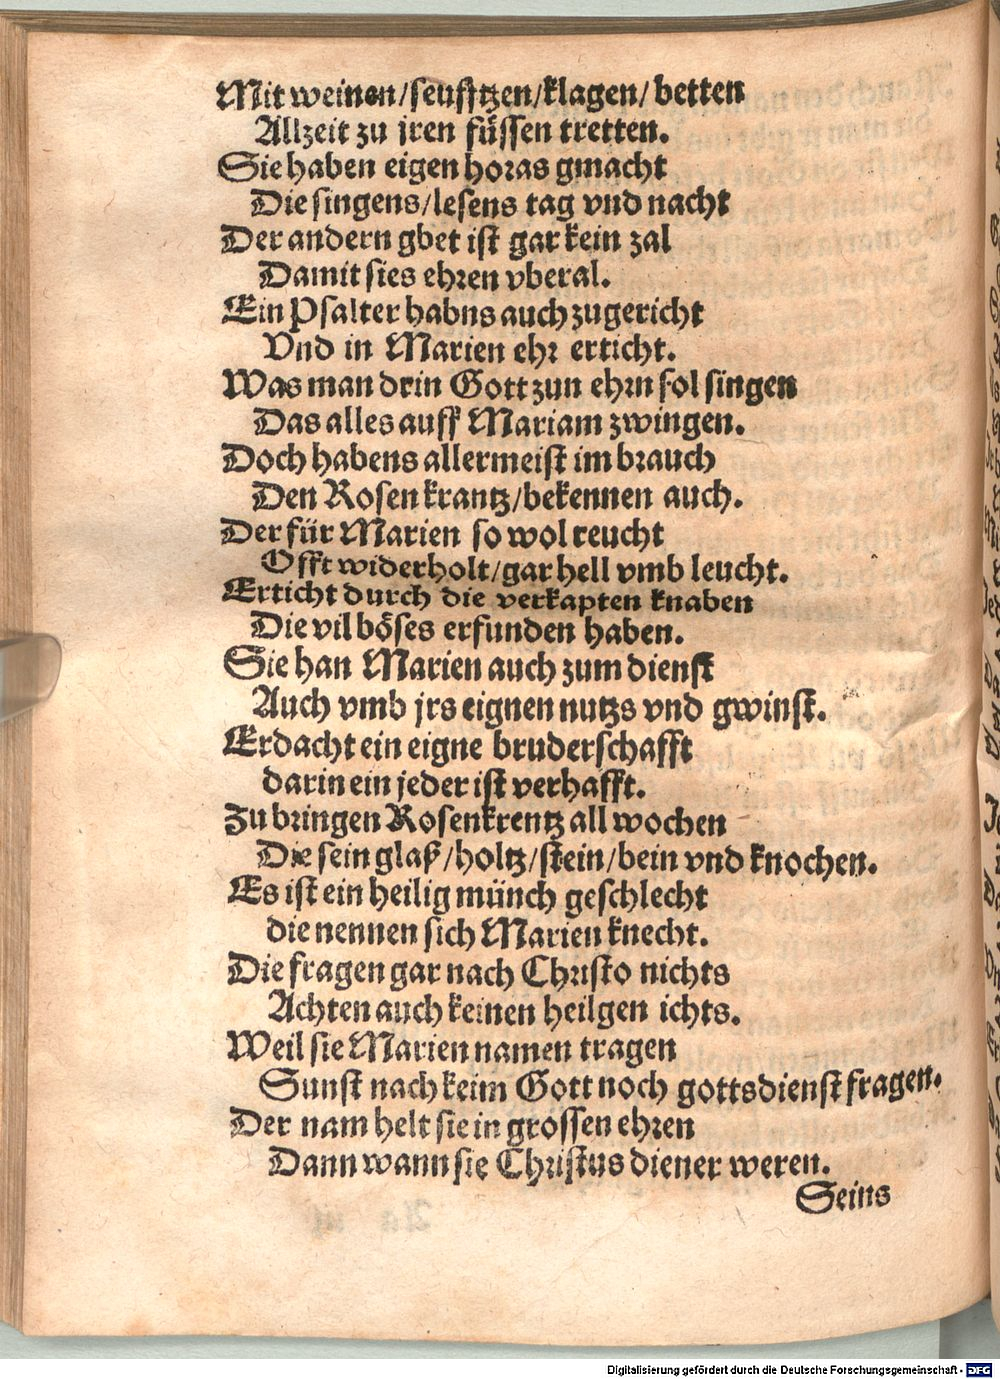 Mit weinen/seufftzen/klagen/betten
Allzeit zu jren füssen tretten.
Sie haben eigen horas gmacht
Die singens/lesens tag vnd nacht
Der andern gbet ist gar kein zal
Damit sies ehren vberal.
Ein Psalter habns auch zugericht
Vnd in Marien ehr erticht.
Was man drin Gott zun ehrn sol singen
Das alles auff Mariam zwingen.
Doch habens allermeist im brauch
Den Rosenkrantz/bekennen auch.
Der für Marien so wol reucht
Offt widerholt/gar hell vmb leucht.
Erticht durch die verkapten knaben
Die vil böses erfunden haben.
Sie han Marien auch zum dienst
Auch vmb jrs eignen nutzs vnd gwinst.
Erdacht ein eigne bruderschafft
darin ein jeder ist verhafft.
Zu bringen Rosenkrentz all wochen
Die sein glaß/holtz/stein/bein vnd knochen.
Es ist ein heilig münch geschlecht
die nennen sich Marien knecht.
Die fragen gar nach Christo nichts
Achten auch keinen heilgen ichts.
Weil sie Marien namen tragen
Sunst nach keim Gott noch gottsdienst fragen.
Der nam helt sie in grossen ehren
Dann wann sie Christus diener weren.
Seins
Digitalisierung gefördert durch die Deutsche Forschungsgemeinschaft - DFG